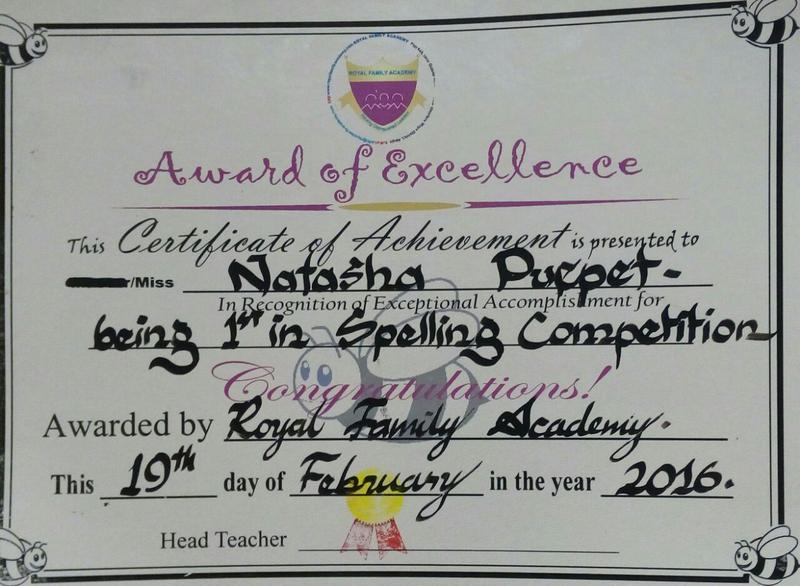 ROYAL FAMILY ACADEMY
Award of Excellence
This Certificate of Achievement is presented to
/Miss Natasha Puepet.
In Recognition of Exceptional Accomplishment for
being 1st in Spelling Competition
Congratulations!
Awarded by Royal Family Academy.
This 19th day of February in the year 2016.
Head Teacher